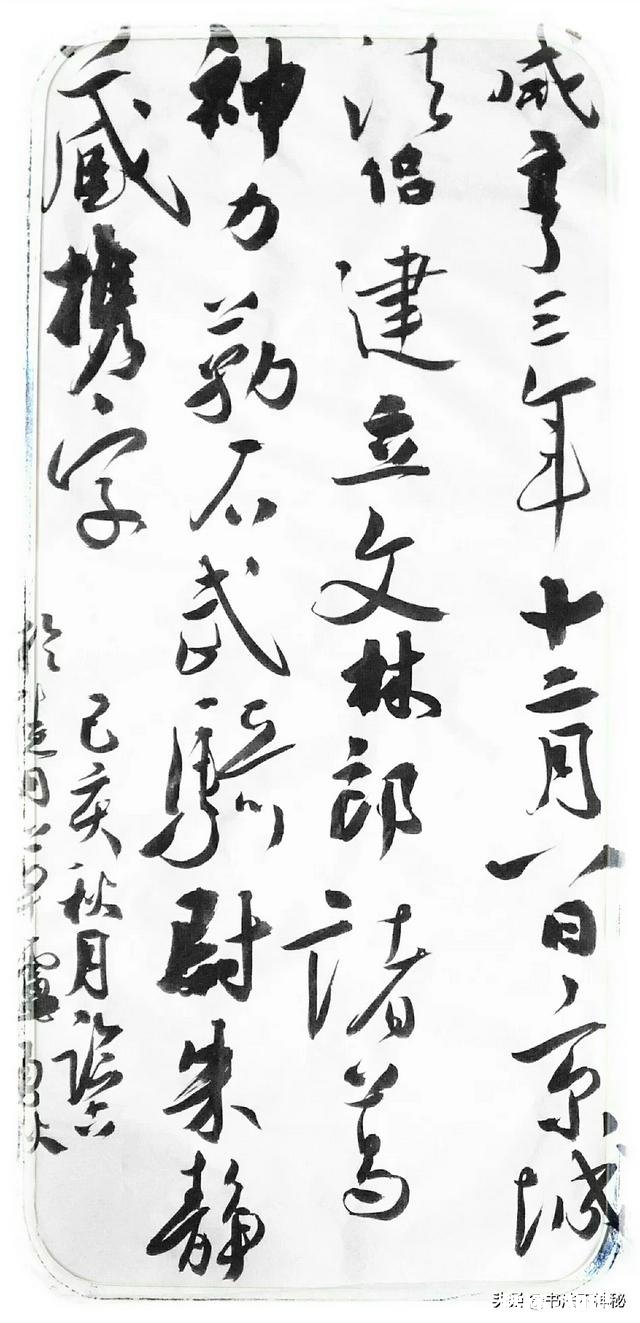 咸亨三年十二月八日京城
法侣建立文林郎諸葛
神力勒石武騎尉朱静
藏携字
己亥秋月臨
头条 @书法不神秘